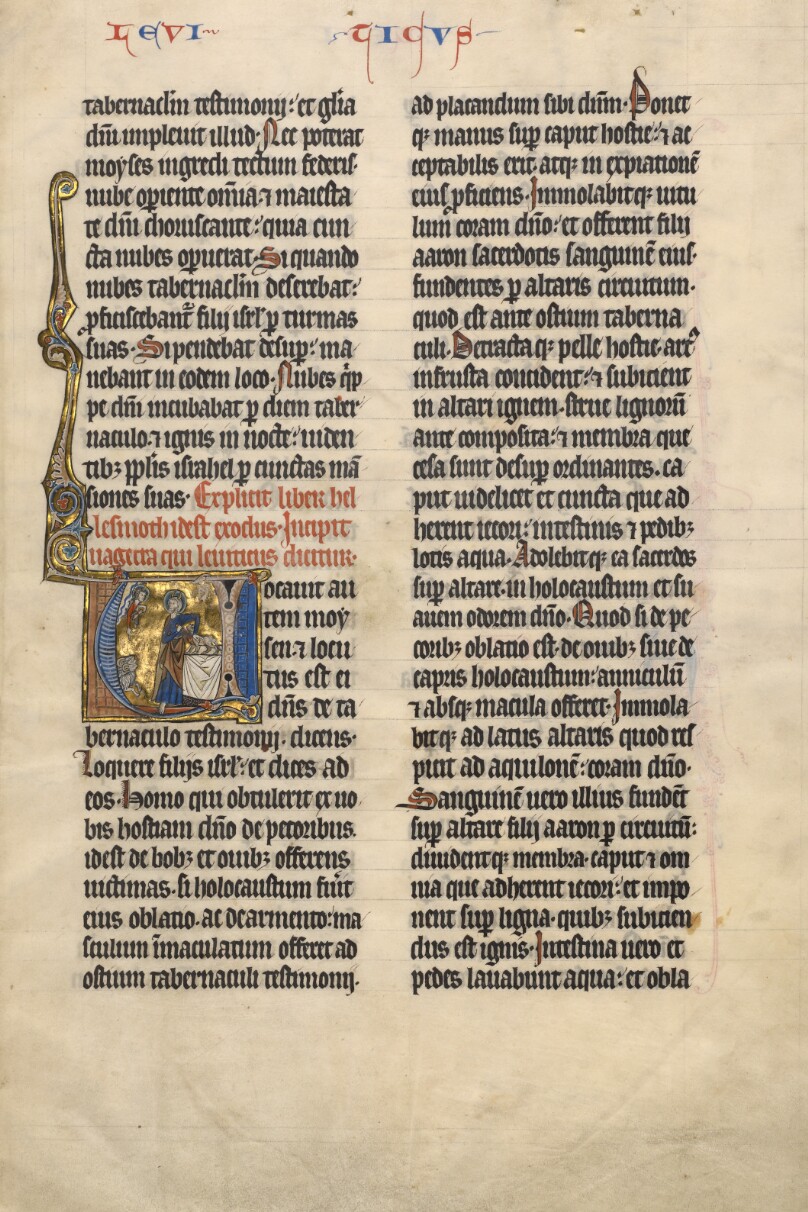 LEVI TICUS
tabernaclm testimonij: et glia
dni impleuit illud. Nec poterat
moyses ingredi tectum federis
nube operiente omnia ⁊ maiesta
te dni choruscante: quia cun
cta nubes operuerat. Si quando
nubes tabernaclm deserebat:
proficiscebant filij isrl p turmas
suas. Si pendebat desup: ma
nebant in eodem loco. Nubes qip
pe dni incubabat p diem taber
naculo. ⁊ ignis in nocte: uiden
tibz pplis israhel p cunctas mā
siones suas. Explicit liber hel
lesmoth idest exodus. Incipit
uagecra qui leuiticus dicitur.
Vocauit au
tem moy
sen. ⁊ locu
tus est ei
dns de ta
bernaculo testimonij. dicens.
Loquere filijs isrl: et dices ad
eos. Homo qui obtulerit ex uo
bis hostiam dno de pecoribus.
idest de bobz et ouibz offerens
uictimas. si holocaustum fuit
eius oblatio. ac de armento: ma
sculum īmaculatum offeret ad
ostium tabernaculi testimonij.
ad placandum sibi dnm. Ponet
qz manus sup caput hostie: ⁊ ac
ceptabilis erit. atqz in expiationē
eius pficiens. Immolabitqz uitu
lum coram dno: et offerent filij
aaron sacerdotis sanguinē eius.
fundentes p altaris circuitum.
quod est ante ostium taberna
culi. Detractaqz pelle hostie. art
infrusta concident: ⁊ subicient
in altari ignem. strue lignorū
ante composita: ⁊ membra que
cesa sunt desup ordinantes. ca
put uidelicet et cuncta que ad
herent iecori: intestinis ⁊ pedibz
lotis aqua. Adolebitqz ea sacerdos
sup altare. in holocaustum et su
auem odorem dno. Quod si de pe
coribz oblatio est. de ouibz siue de
capris holocaustum: anniculū
⁊ absqz macula offeret. Immola
bitqz ad latus altaris quod res
picit ad aquilonē: coram dno.
Sanguinē uero illius fundēt
sup altare filij aaron p circuitū:
diuidentqz membra. caput ⁊ om
nia que adherent iecori: et impo
nent sup ligna. quibz subicien
dus est ignis. Intestina uero et
pedes lauabunt aqua: et obla